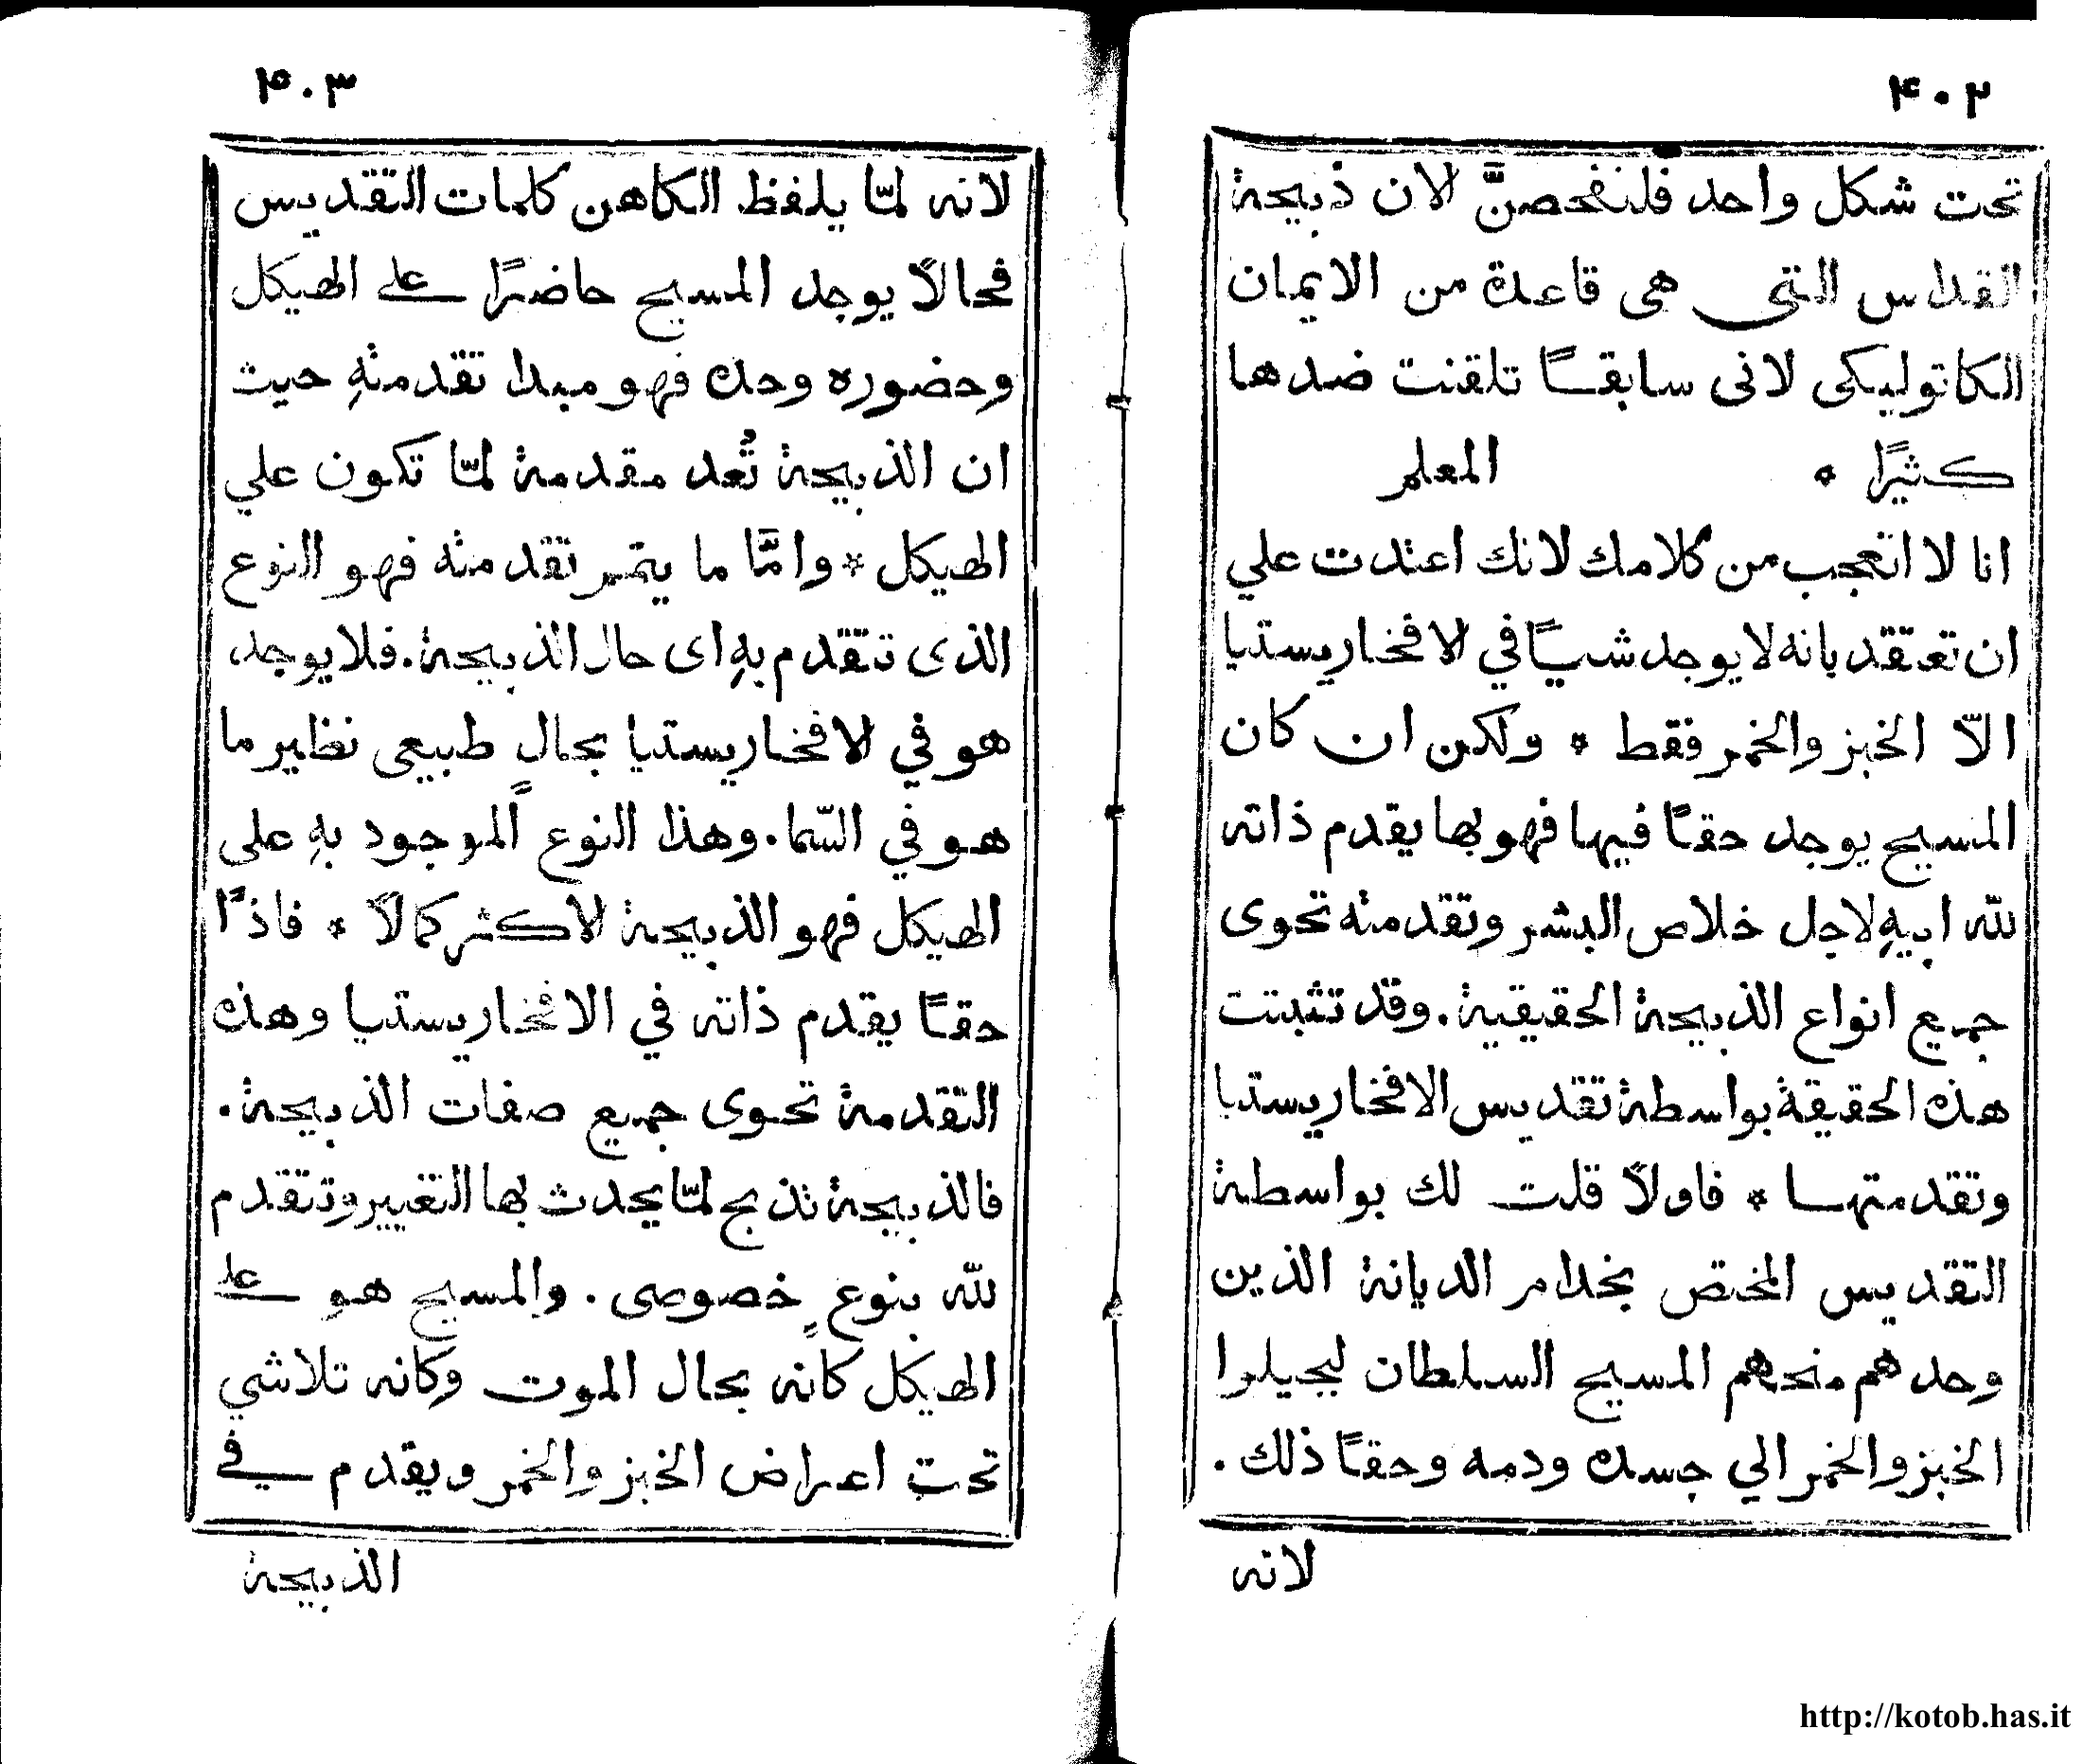 ٤٠٢
تحت شكل واحد فلنفحصنَّ الان ذبيحة
القداس التي هى قاعدة من الايمان
الكاتوليكى لانى سابقًا تلقنت ضدها
كثيرًا * المعلم
انا لا اتعجب من كلامك لانك اعتدت علي
ان تعتقد بانه لا يوجد شيًا في الافخاريستيا
الاّ الخبز والخمر فقط * ولكن ان كان
المسيح يوجد حقًا فيها فهو بها يقدم ذاته
لله ابيهِ لاجل خلاص البشر وتقدمته تحوى
جميع انواع الذبيحة الحقيقية. وقد تثبتت
هذه الحقيقة بواسطة تقديس الافخاريستيا
وتقدمتها * فاولاً قلت لك بواسطة
التقديس المختص بخدام الديانة الذين
وحدهم منحهم المسيح السلطان ليحيلوا
الخبز والخمر الي جسده ودمه وحقًا ذلك.
لانه
٤٠٣
لانه لمّا يلفظ الكاهن كلمات التقديس
فحالاً يوجد المسيح حاضرًا على الهيكل
وحضوره وحده فهو مبدا تقدمتهِ حيث
ان الذبيحة تُعد مقدمة لمّا تكون علي
الهيكل * وامَّا ما يتم تقدمته فهو النوع
الذى تتقدم بهِ اى حال الذبيحة. فلا يوجد
هو في الافخاريستيا بحالٍ طبيعى نظير ما
هو في السّما. وهذا النوع الموجود بهِ على
الهيكل فهو الذبيحة الاكثر كمالاً * فاذًا
حقًا يقدم ذاته في الافخاريستيا وهذه
التقدمة تحوى جميع صفات الذبيحة.
فالذبيحة تذبح لمّا يحدث بها التغيير وتتقدم
لله بنوعٍ خصوصى. والمسيح هو على
الهيكل كانه بحال الموت وكانه تلاشي
تحت اعراض الخبز والخمر ويقدم في
الذبيحة
http://kotob.has.it